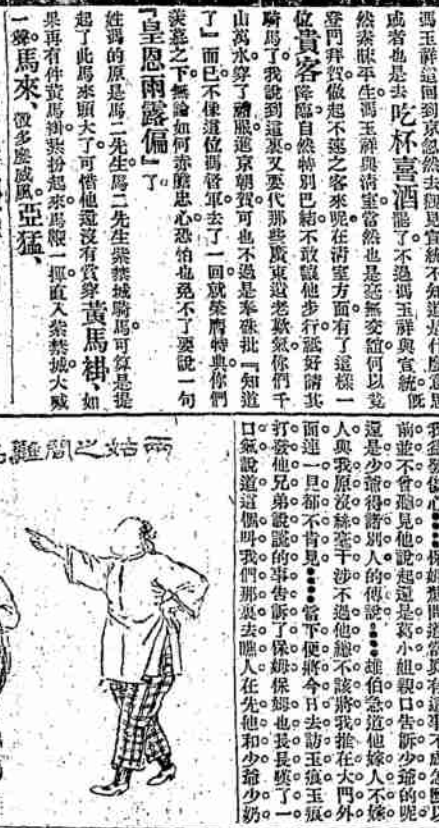 馮玉祥這回到京忽然去覲見宣統不知道是什麼意思
或者也是去吃杯喜酒罷了不過馮玉祥與宣統旣
然素昧平生馮玉祥與清室當然也是毫無交誼何以竟
登門拜賀做起不速之客來呢在清室方面有了這樣一
位貴客降臨自然特別巴結不敢讓他步行祗好請其
騎馬了我說到這裏又要代那些廣東遺老歎氣你們千
山萬水穿了禮服進京朝賀可也不過是奉硃批『知道
了』而已不像這位馮督軍去了一回就榮膺特典你們
羨慕之下無論如何赤膽忠心恐怕也免不了要說一句
『皇恩雨露偏』了
姓馮的原是馬二先生馬二先生紫禁城騎馬可算是提
起了此馬來頭大了可惜他還沒有賞穿黃馬褂、如
果再有件黃馬褂裝扮起來馬鞭一揮直入紫禁城大喊
一聲。馬來、
前並不曾聽見他說起還是葛小姐親口告訴少爺的呢
還是少爺得諸別人的傳說⋯⋯雄伯急道他嫁人不嫁
人與我原沒絲毫干涉不過他總不該將我推在大門外
面連一見都不肯見⋯⋯當下便將今日去訪玉痕玉痕
打發他兄弟說謊的事告訴了保姆保姆也長長嘆了一
口氣說道這個叫我們那裏去瞧人在先他和少爺少奶
兩姑之間難